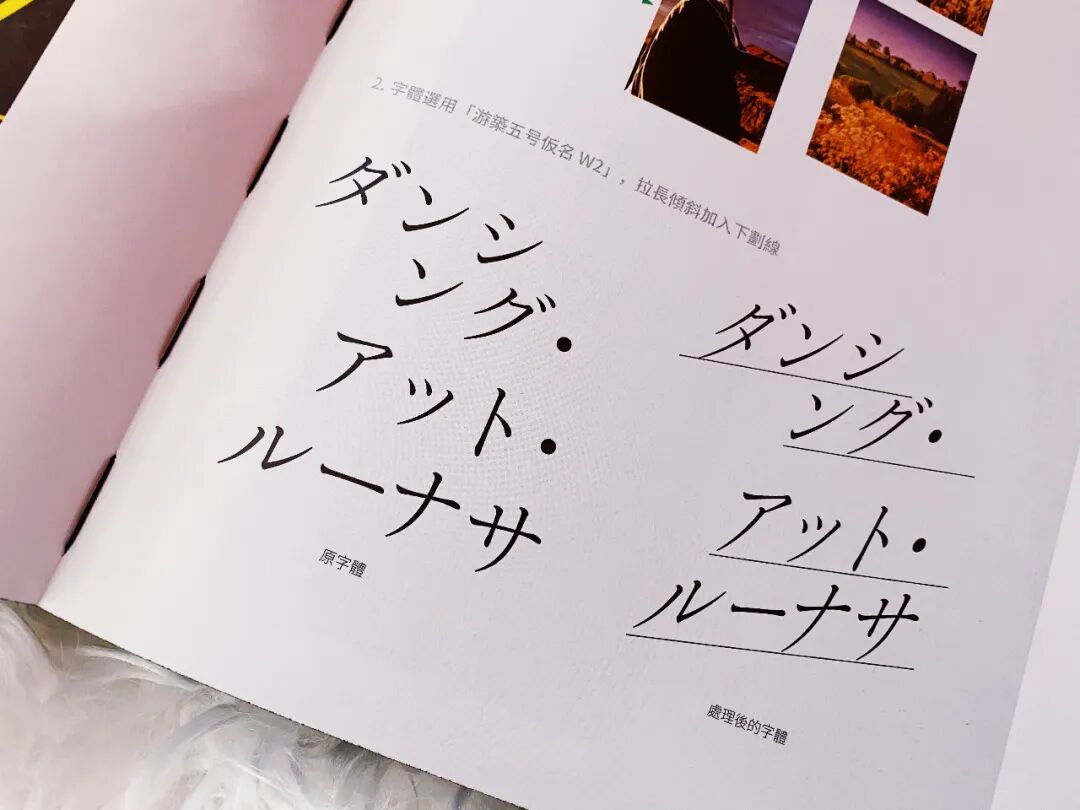 2. 字體選用「游築五号仮名 W2」，拉長傾斜加入下劃線
ダンシ
ング・
アット・
ルーナサ
原字體
ダンシ
ング・
アット・
ルーナサ
處理後的字體